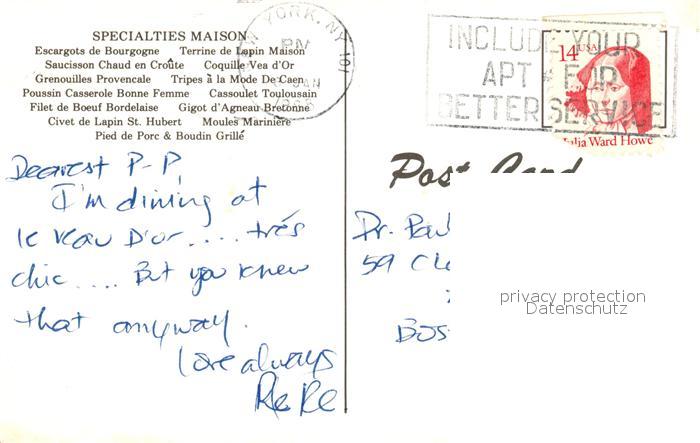 SPECIALTIES MAISON
Escargots de Bourgogne Terrine de Lapin Maison
Saucisson Chaud en Croûte Coquille Vea d'Or
Grenouilles Provencale Tripes à la Mode De Caen
Poussin Casserole Bonne Femme Cassoulet Toulousain
Filet de Boeuf Bordelaise Gigot d'Agneau Bretonne
Civet de Lapin St. Hubert Moules Marinière
Pied de Porc & Boudin Grillé
YORK, NY 101
PM
INCLUDE YOUR
APT # FOR
BETTER SERVICE
14 USA
Julia Ward Howe
Post Card
Dearest P-P,
I'm dining at
le Veau D'or.... très
chic.... But you knew
that anyway.
love always
ReRe
Dr. Paul
59
Bos
privacy protection
Datenschutz